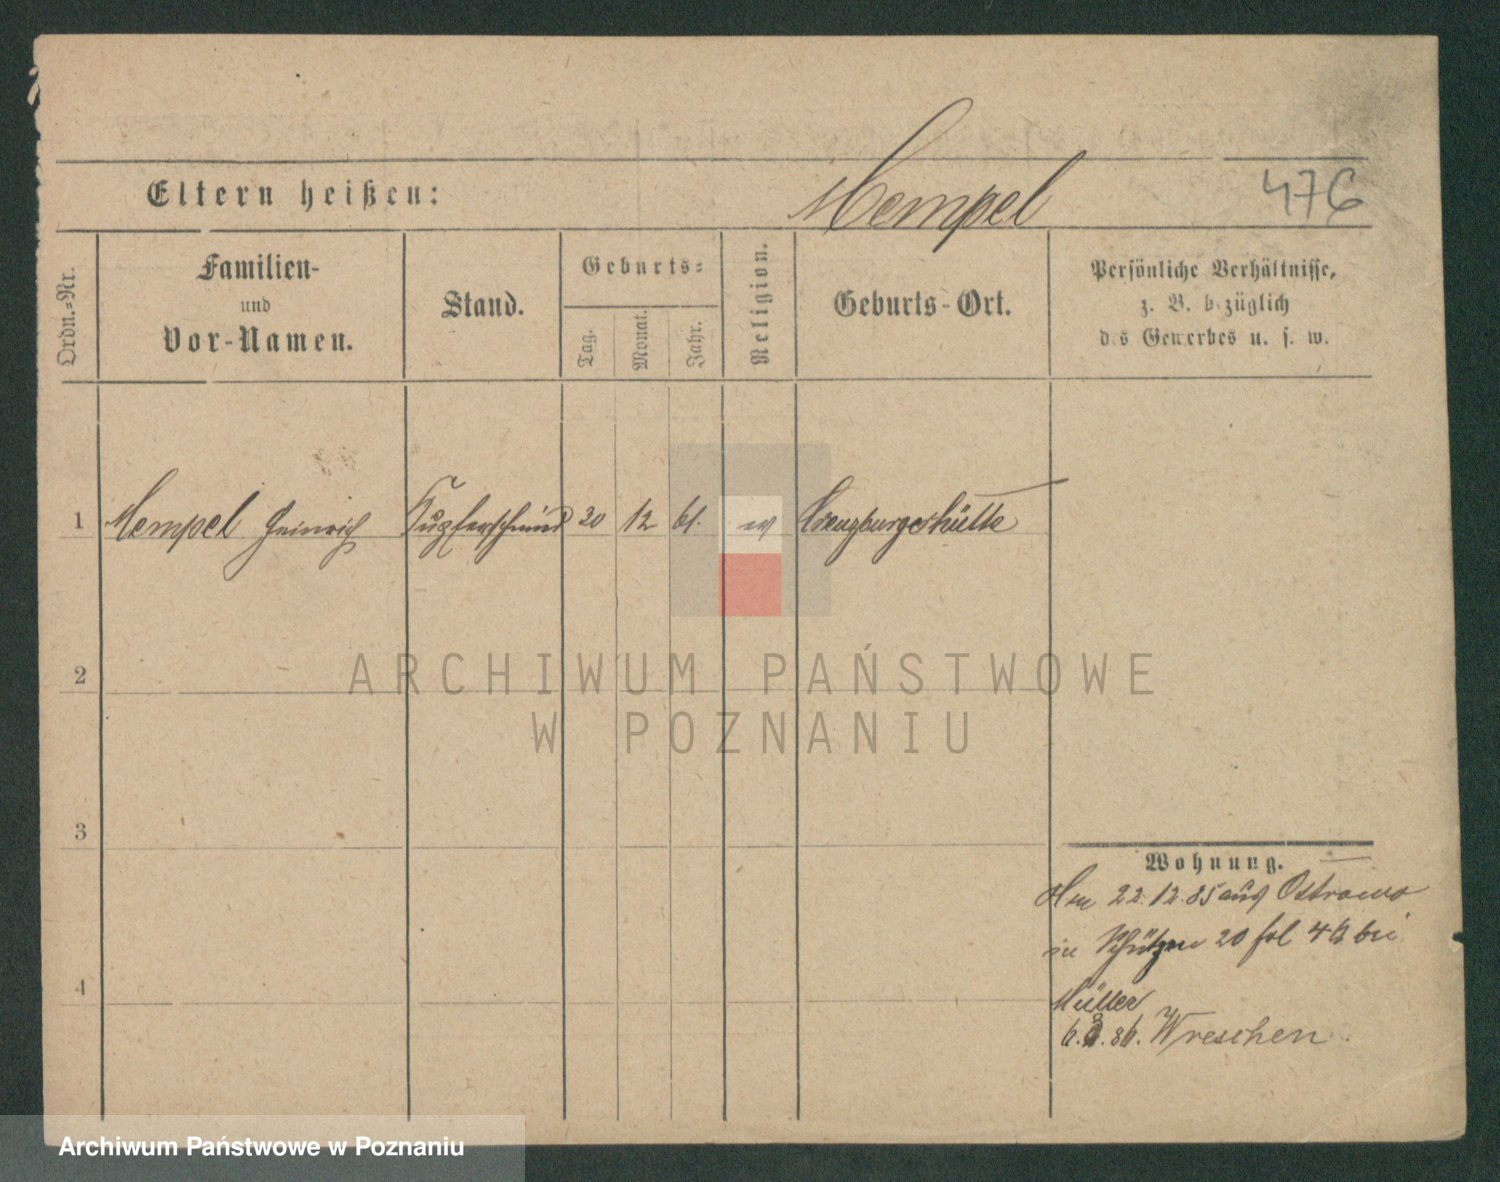 Eltern heißen: Mempel 476
Ordn.-Nr.
Familien-
und
Vor-Namen.
Stand.
Geburts-
Tag.
Monat.
Jahr.
Religion.
Geburts-Ort.
Persönliche Verhältnisse,
z. B. bezüglich
des Gewerbes u. s. w.
1 Mempel Heinrich Kupferschmied 20 12 61. ev Creuzburgerhütte
ARCHIWUM PAŃSTWOWE
W POZNANIU
2
3
4
Wohnung.
Am 22.12.85 aus Ostrowo
in Schützen 20 fol 46 bei
Müller
6. 86. Wreschen
Archiwum Państwowe w Poznaniu